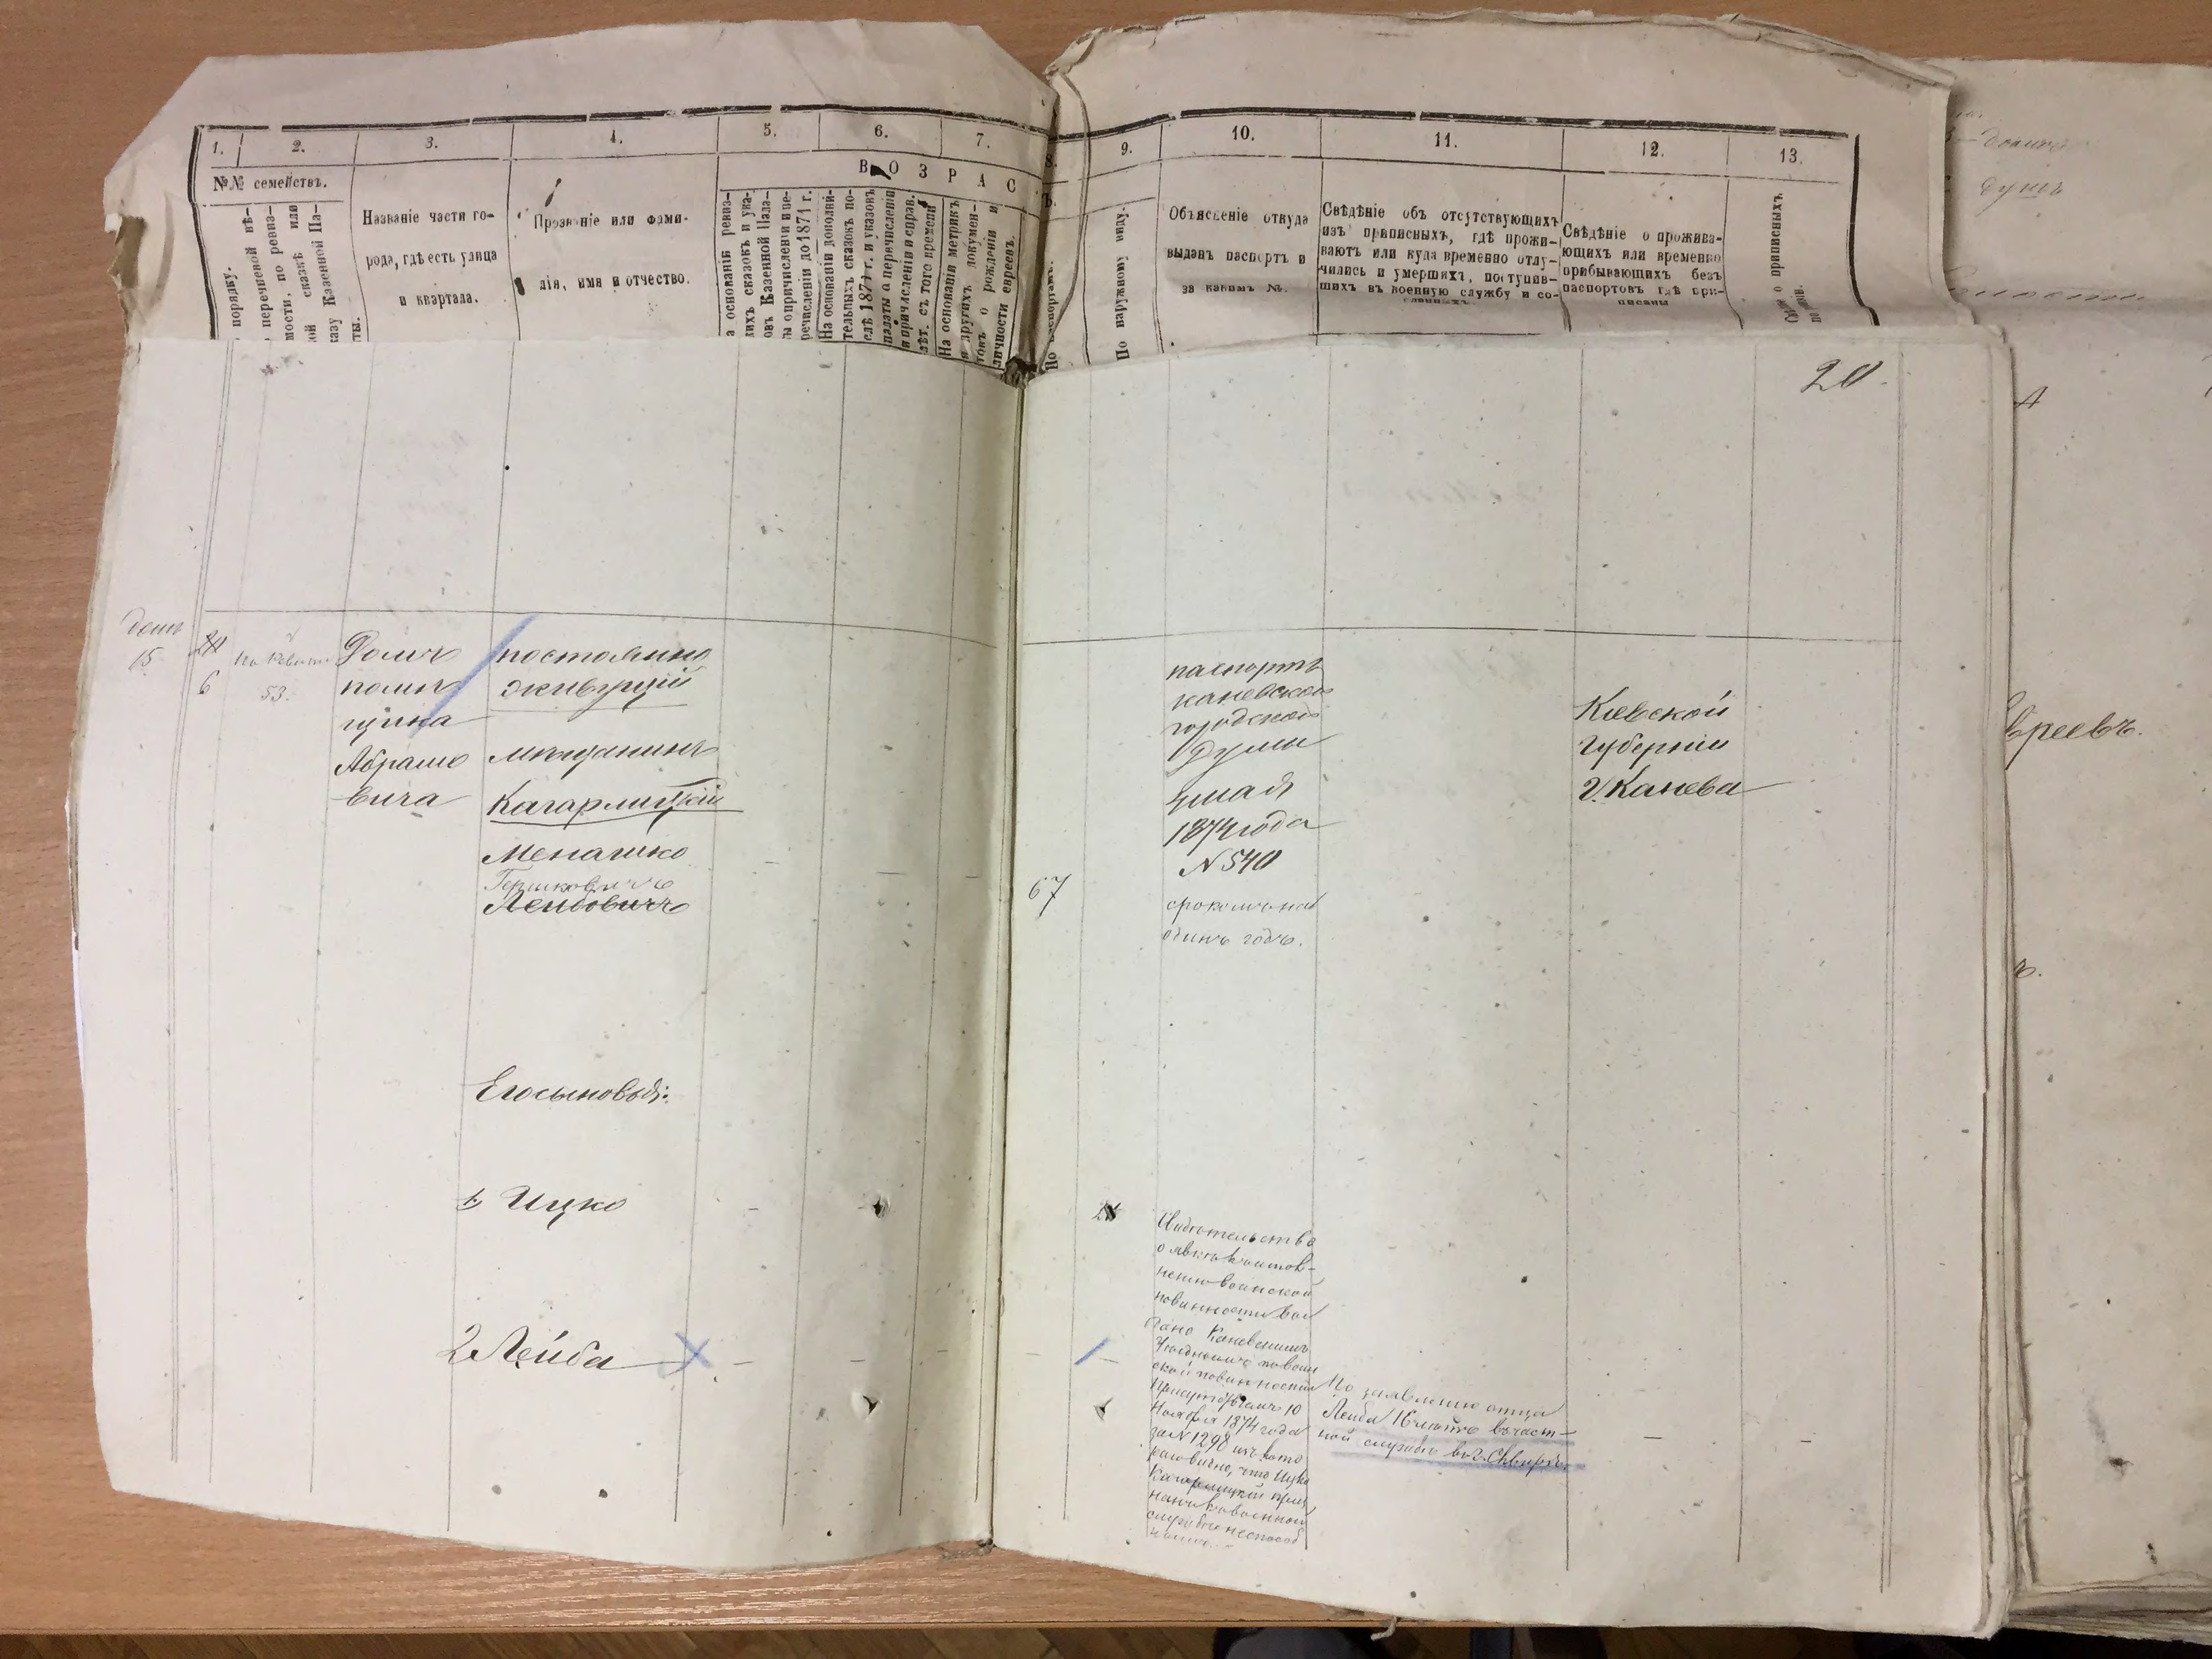 1.
2.
3.
4.
5.
6.
7.
8.
9.
10.
11.
12.
13.
№№ семействъ.
ВОЗРАС
ъ.
порядку.
перечневой вѣ-
мости, по ревиз-
ой сказкѣ или
казу Казенной Па-
ты.
Названіе части го-
рода, гдѣ есть улица
и квартала.
Прозваніе или фами-
лія, имя и отчество.
а основаніи ревиз-
кихъ сказокъ и ука-
овъ Казенной Пала-
ы о причисленіи и пе-
речисленіи до 1871 г.
На основаніи дополни-
тельныхъ сказокъ по-
слѣ 1871 г. и указовъ
палаты о перечисленіи
и причисленіи и справ.
лѣт. съ того времени
На основаніи метрикъ
и другихъ докумен-
товъ о рожденіи и
личности евреевъ.
По наружному виду.
Объясненіе откуда
выданъ паспортъ и
за какимъ №.
Свѣдѣніе объ отсутствующихъ
изъ приписныхъ, гдѣ прожи-
ваютъ или куда временно отлу-
чились и умершихъ, поступив-
шихъ въ военную службу и со-
сланныхъ.
Свѣдѣніе о прожива-
ющихъ или временно
прибывающихъ безъ
паспортовъ гдѣ при-
писаны
о приписныхъ
20.
15
6
53.
Домъ
помѣ
щика
Абрамо
вича
постоянно
живущій
мѣщанинъ
Кагарлицкій
Менашко
Гершковичъ
Лейбовичъ
67
паспортъ
каневской
городской
Думы
3 мая
1874 года
N 540
срокомъ на
одинъ годъ.
Кіевской
Губерніи
г. Канева
Его сыновья:
1 Ицко
2 Лейба
Свидѣтельство
о явкѣ к исполн-
нению воинской
повинности вы
дано Каневскимъ
Уѣзднымъ по воин
ской повинности
Присутствіемъ 10
Ноября 1874 года
за N 1298 изъ кото
раго видно, что Ицко
Кагарлицкій приз
нанъ къ военной
службѣ неспособ
нымъ.
По заявлению отца
Лейба 16 лѣтъ в част-
ной службѣ в г. Сквирѣ.
душъ
вреевъ.